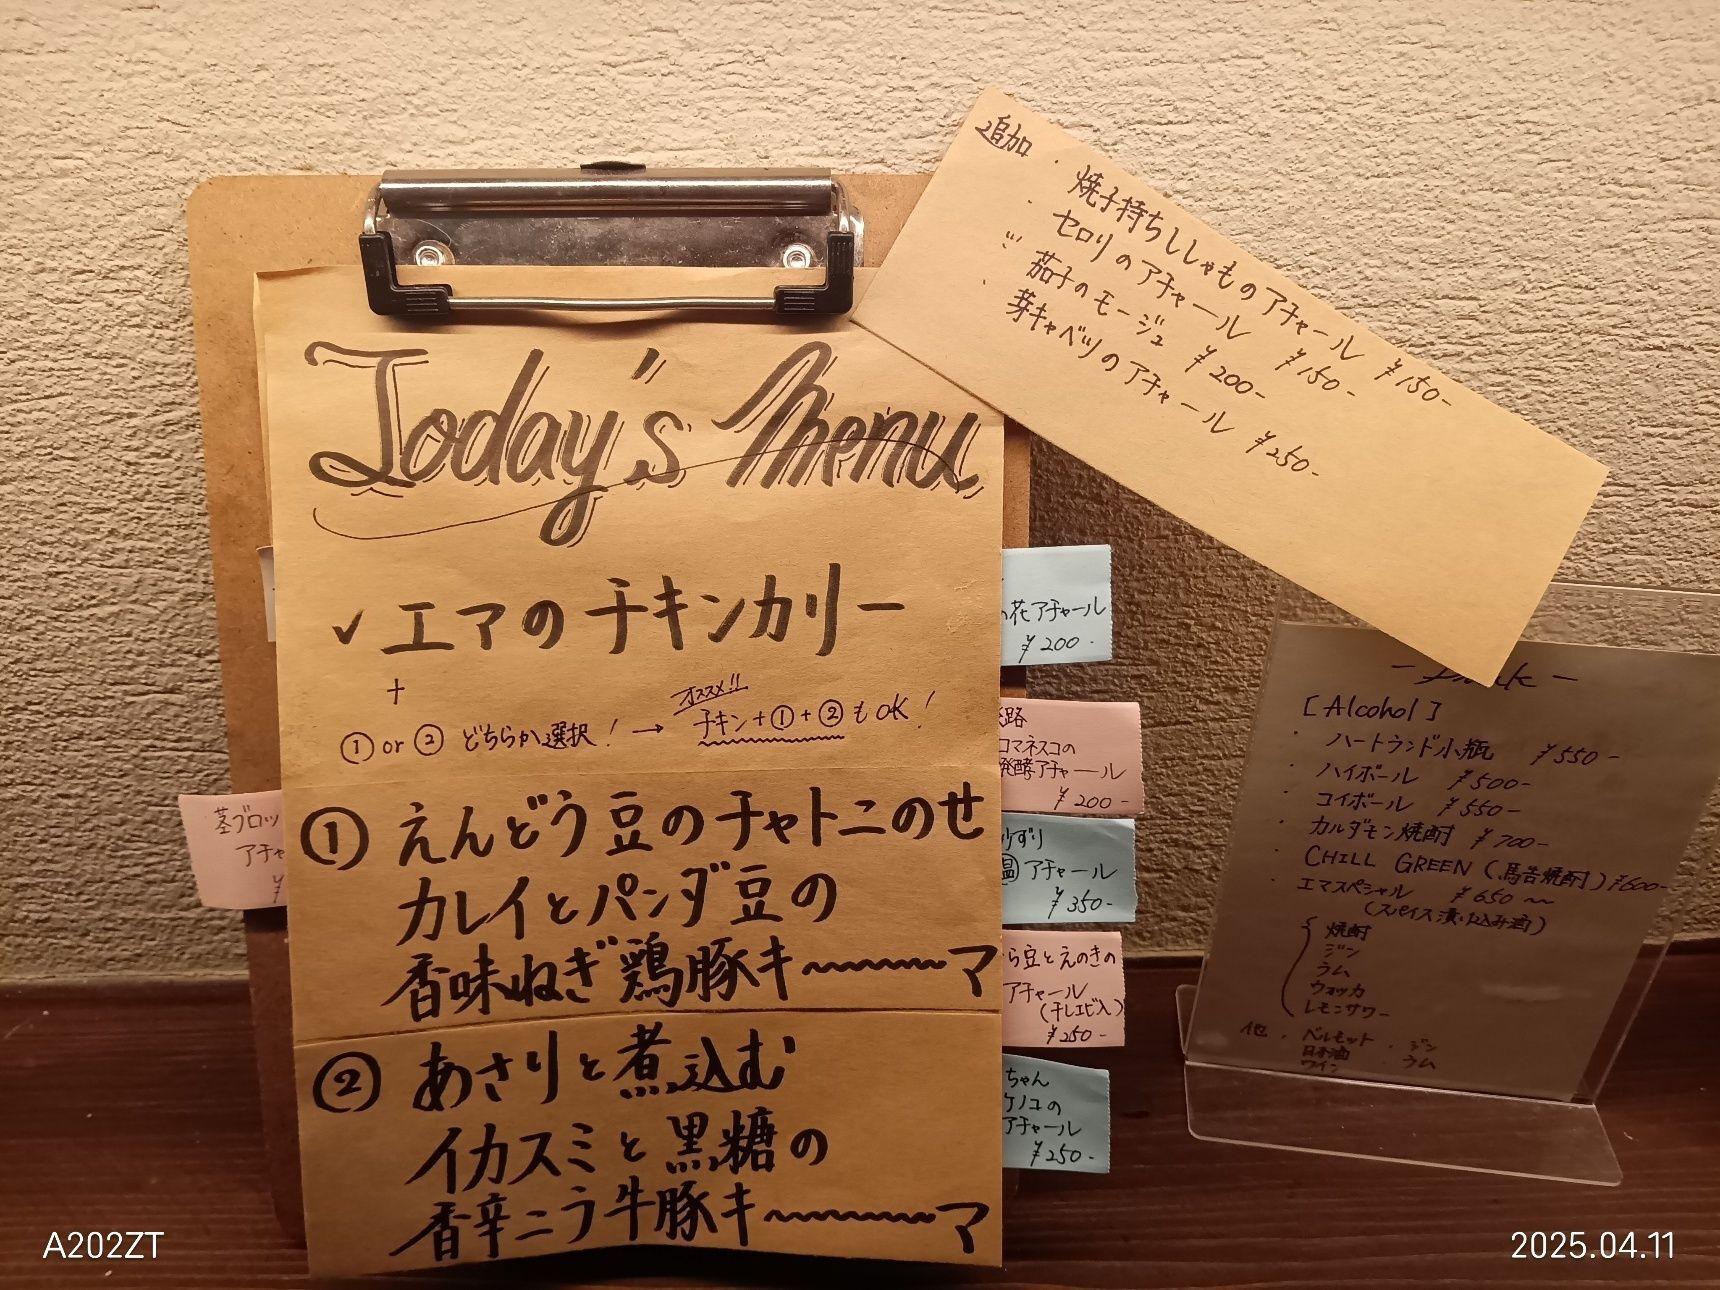 Today's Menu
✓ エマのチキンカリー
+
① or ② どちらか選択! →
オススメ!!
チキン+①+②もOK!
① えんどう豆のチャトニのせ
カレイとパンダ豆の
香味ねぎ鶏豚キ〜〜〜マ
② あさりと煮込む
イカスミと黒糖の
香辛ニラ牛豚キ〜〜〜マ
追加
・焼子持ちししゃものアチャール ¥150-
・セロリのアチャール ¥150-
茄子のモージュ ¥200-
・芽キャベツのアチャール ¥250-
茎ブロッ
アチャ
¥
の花アチャール
¥200-
路
コマネスコの
発酵アチャール
¥200-
ずり
温アチャール
¥350-
ら豆とえのきの
アチャール
(干しエビ入)
¥250-
ちゃん
ケノコの
アチャール
¥250-
[Alcohol]
・ハートランド小瓶 ¥550-
・ハイボール ¥500-
・コイボール ¥550-
・カルダモン焼酎 ¥700-
・CHILL GREEN (馬告焼酎) ¥600-
・エマスペシャル ¥650~
(スパイス漬け込み酒)
焼酎
ジン
ラム
ウォッカ
レモンサワー
他・ベルモット・ジン
日本酒・ラム
ワイン
A202ZT
2025.04.11